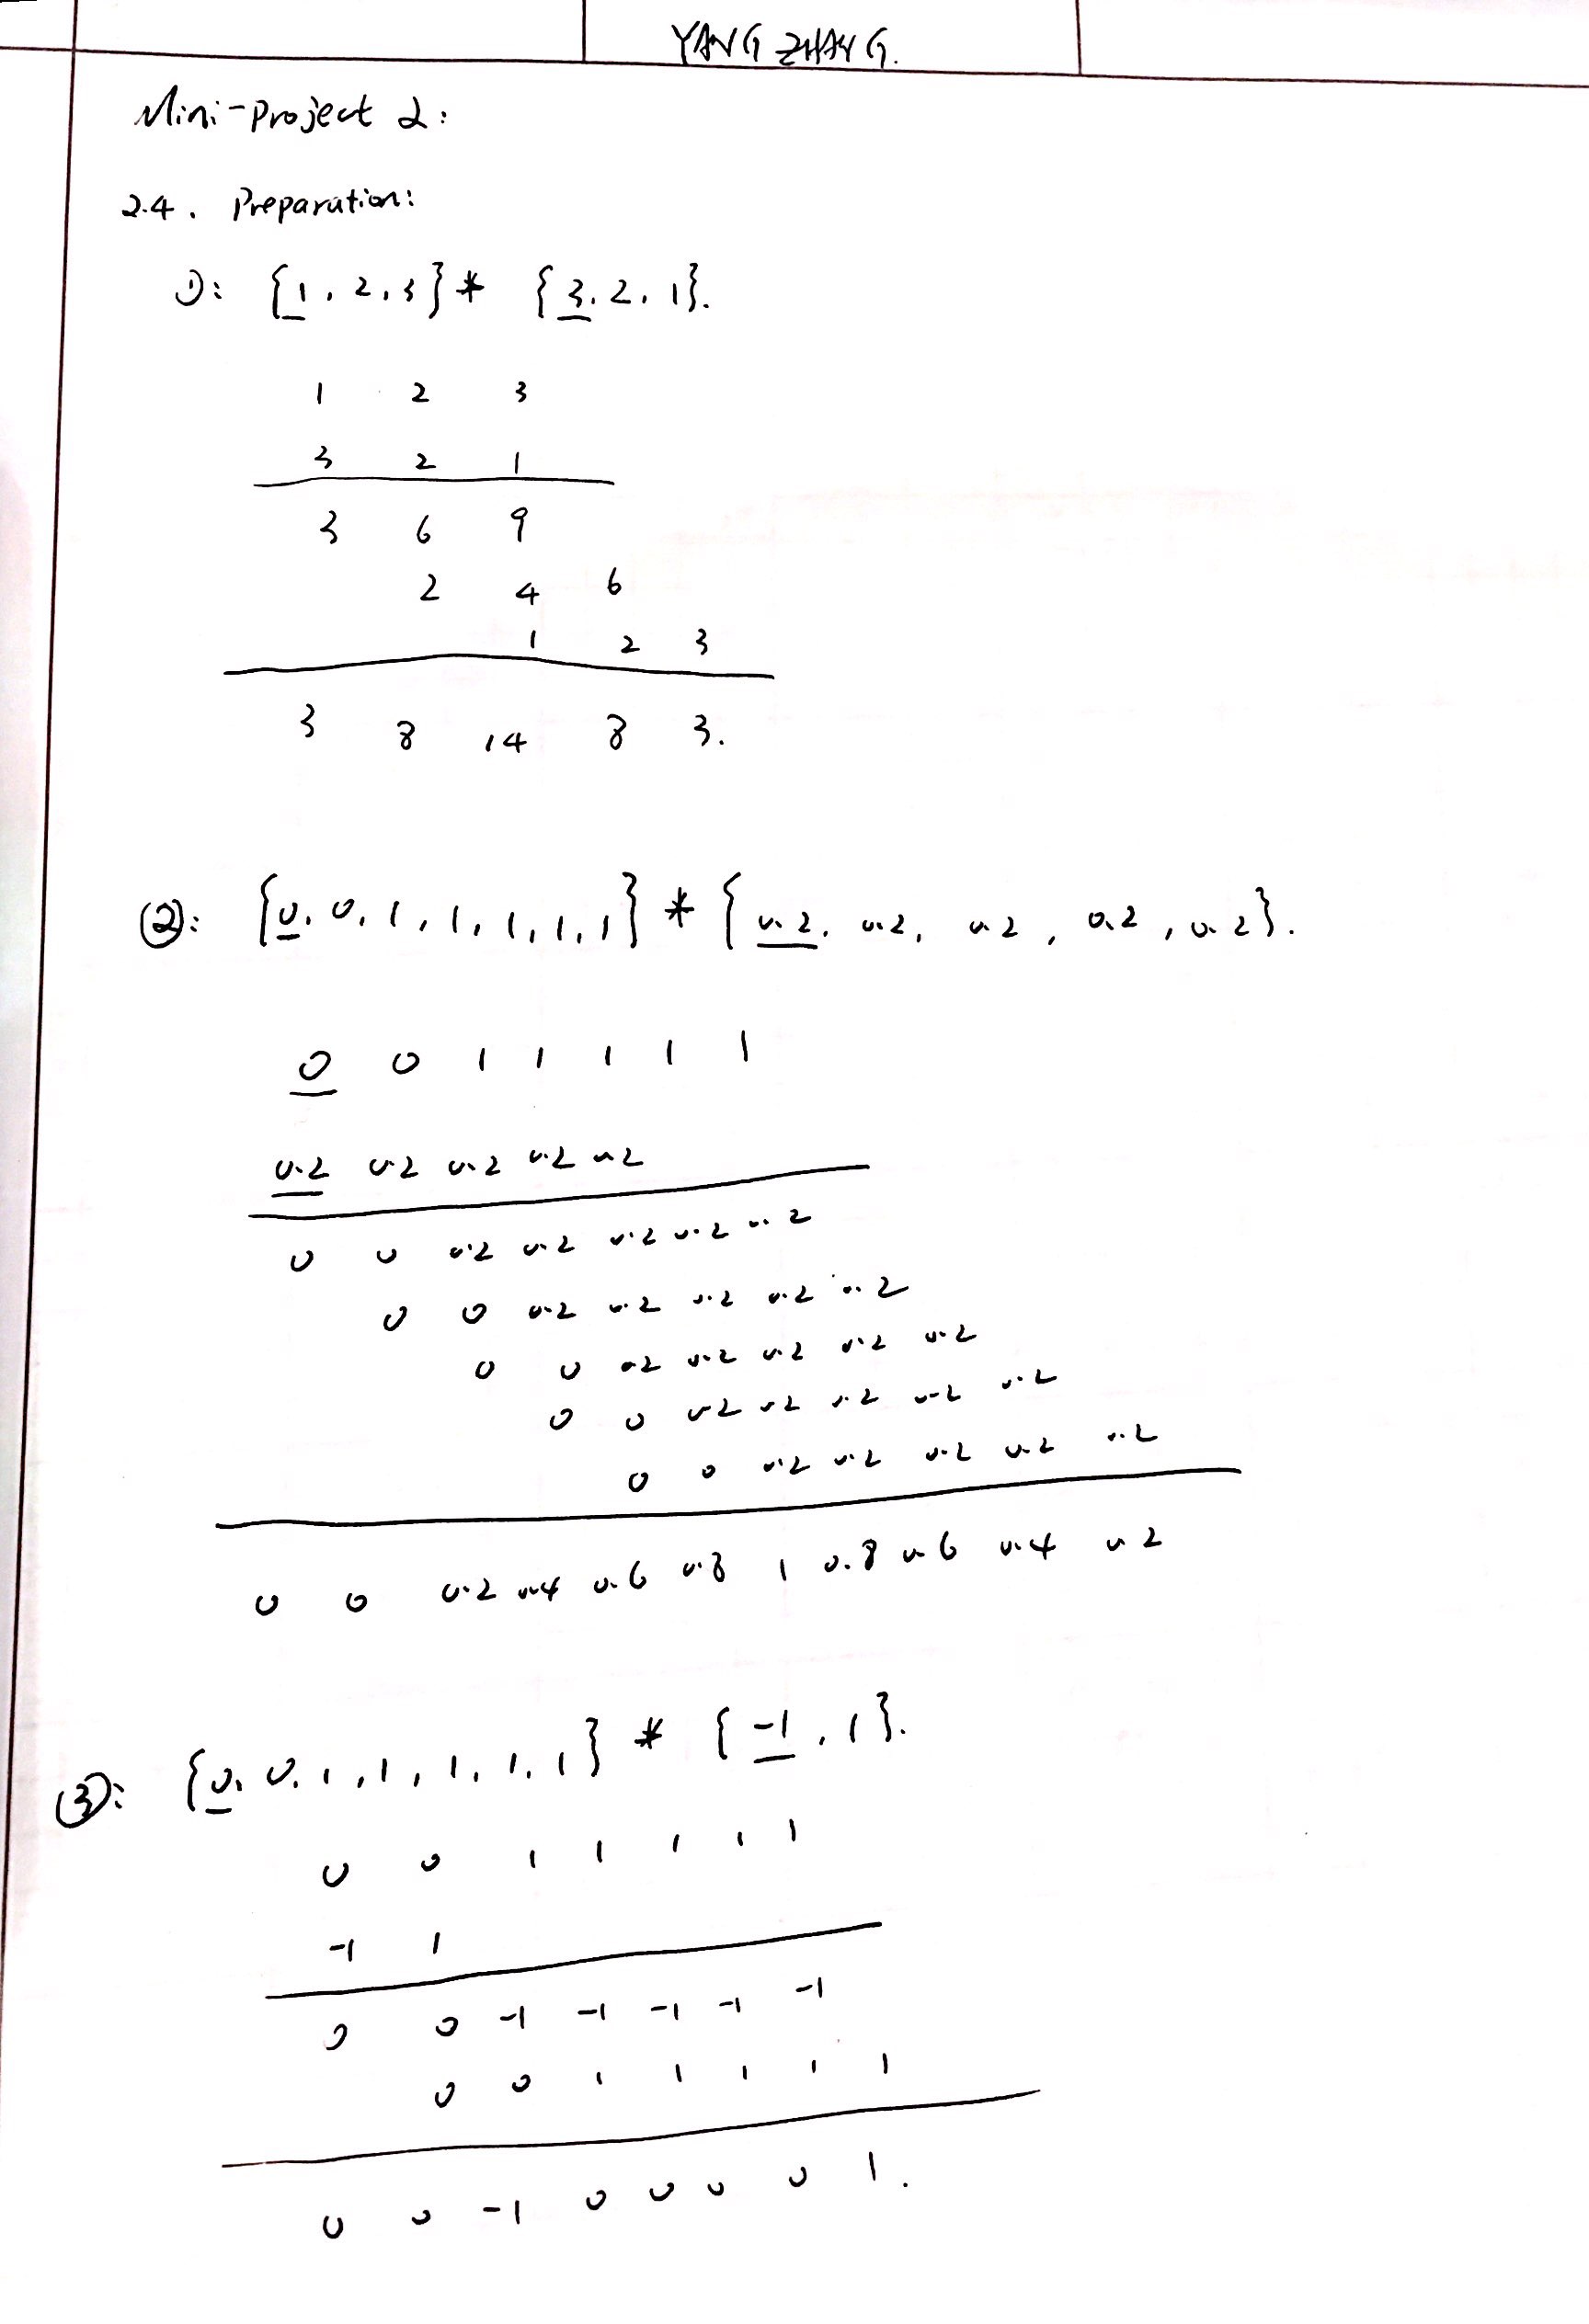 YANG ZHANG.
Mini-Project 2:
2.4. Preparation:
①: {1, 2, 3} * {3, 2, 1}.
1 2 3
3 2 1
3 6 9
2 4 6
1 2 3
3 8 14 8 3.
②: {0, 0, 1, 1, 1, 1, 1} * {0.2, 0.2, 0.2, 0.2, 0.2}.
0 0 1 1 1 1 1
0.2 0.2 0.2 0.2 0.2
0 0 0.2 0.2 0.2 0.2 0.2
0 0 0.2 0.2 0.2 0.2 0.2
0 0 0.2 0.2 0.2 0.2 0.2
0 0 0.2 0.2 0.2 0.2 0.2
0 0 0.2 0.2 0.2 0.2 0.2
0 0 0.2 0.4 0.6 0.8 1 0.8 0.6 0.4 0.2
③: {0, 0, 1, 1, 1, 1, 1} * {-1, 1}.
0 0 1 1 1 1 1
-1 1
0 0 -1 -1 -1 -1 -1
0 0 1 1 1 1 1
0 0 -1 0 0 0 0 1.